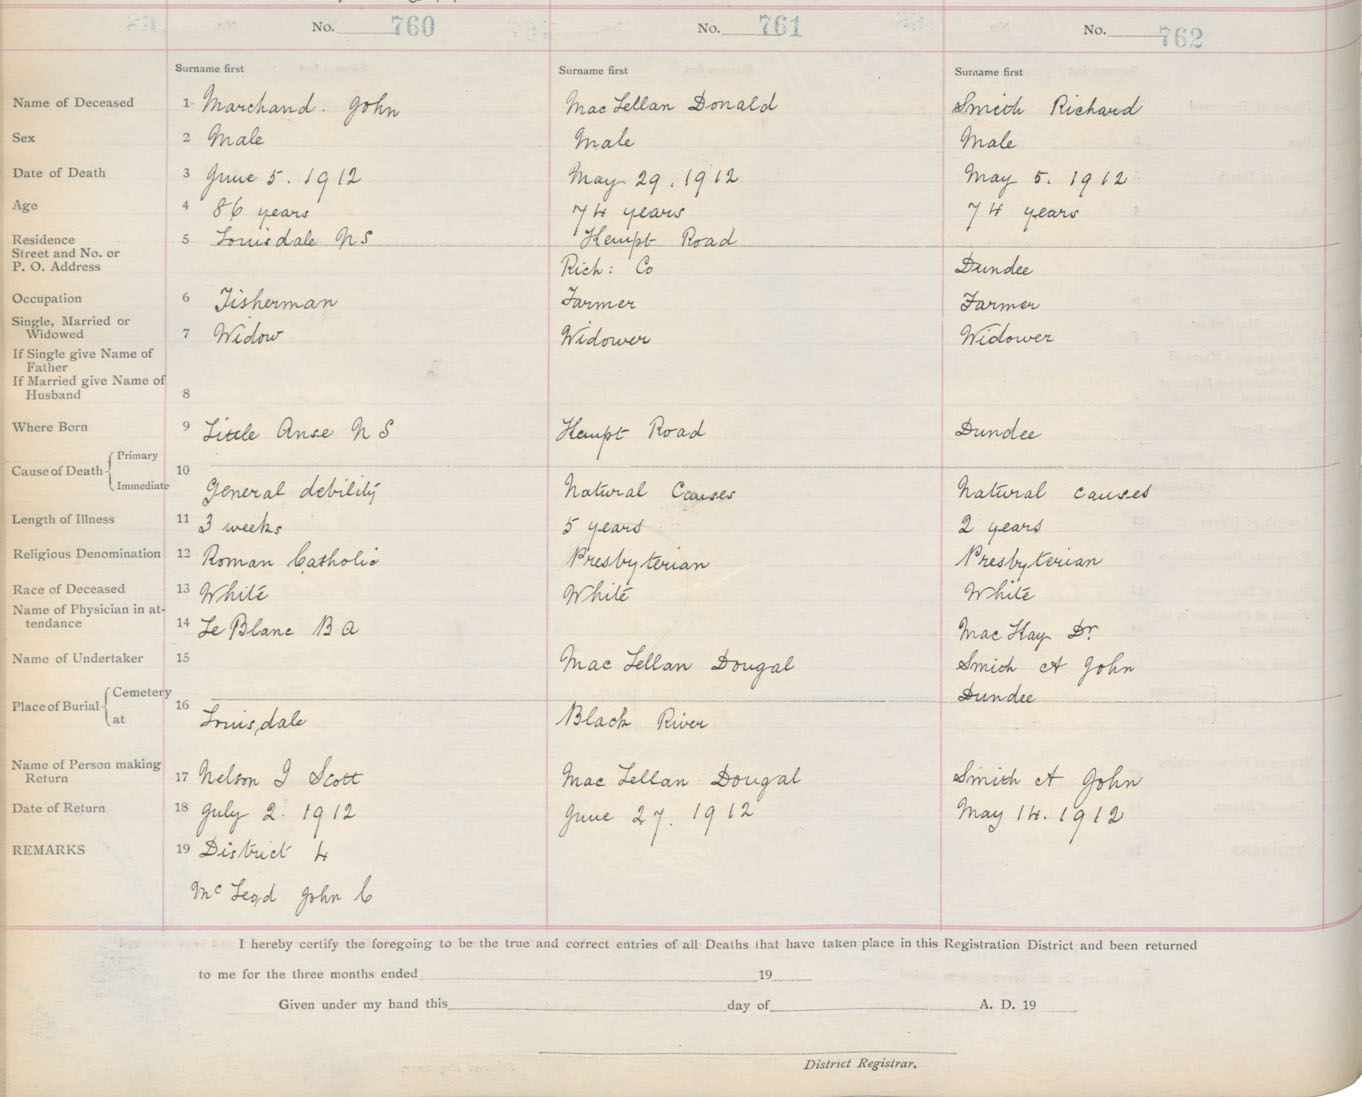 No. 760 No. 761 No. 762
Surname first Surname first Surname first
Name of Deceased 1 Marchand. John MacLellan Donald Smith Richard
Sex 2 Male Male Male
Date of Death 3 June 5. 1912 May 29. 1912 May 5. 1912
Age 4 86 years 74 years 74 years
Residence 5 Louisdale NS Kempt Road
Street and No. or
P. O. Address Rich: Co Dundee
Occupation 6 Fisherman Farmer Farmer
Single, Married or
Widowed 7 Widow Widower Widower
If Single give Name of
Father
If Married give Name of
Husband 8
Where Born 9 Little Anse N S Kempt Road Dundee
Primary
Cause of Death 10
Immediate General debility Natural Causes Natural causes
Length of Illness 11 3 weeks 5 years 2 years
Religious Denomination 12 Roman Catholic Presbyterian Presbyterian
Race of Deceased 13 White White White
Name of Physician in at-
tendance 14 Le Blanc B A MacKay Dr
Name of Undertaker 15 Mac Lellan Dougal Smith A John
Cemetery Dundee
Place of Burial 16
at Louisdale Black River
Name of Person making
Return 17 Nelson J Scott Mac Lellan Dougal Smith A John
Date of Return 18 July 2. 1912 June 27. 1912 May 14. 1912
REMARKS 19 District 4
McLeod John C
I hereby certify the foregoing to be the true and correct entries of all Deaths that have taken place in this Registration District and been returned
to me for the three months ended 19
Given under my hand this day of A. D. 19
District Registrar.